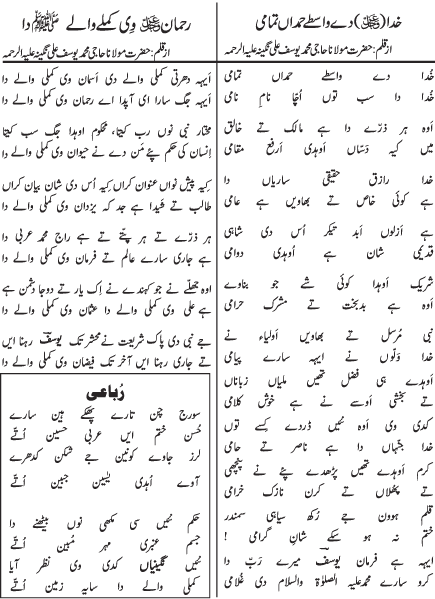 خدا (ﷺ) دے واسطے حمداں تمامی
از قلم: حضرت مولانا حاجی محمد یوسف علی نگینہ علیہ الرحمہ
خدا دے واسطے حمداں تمامی
خدا دا سب توں اُچا نامِ نامی
اوہ ہر ذرّے دا ہے مالک تے خالق
میں کیہ دَساں اوہدی ارفع مقامی
خدا رازق حقیقی ساریاں دا
ہے کوئی خاص تے بھاویں ہے عامی
ہے ازلوں ابد تیکر اُس دی شاہی
قدیمی شان ہے اُوہدی دوامی
شریک اوہدا کوئی شے جو بناوے
اوہ ہے بدبخت تے مشرک حرامی
نبی مُرسل تے بھاویں اَولیاء نے
خدا وَلّوں نے ایہہ سارے پیامی
اوہدے ہی فضل تھیں ملیاں زباناں
تے بخشی اُوسے نے ہے خوش کلامی
کدی وی اوہ نئیں ڈردے کِسے توں
خدا جنہاں دا ہے ناصر تے حامی
کرم اوہدے تھیں پڑھدے پئے نے پنچھی
تے پھُلاں تے کرن نازک خرامی
قلم ہوون جے رُکھ سیاہی سمندر
ختم نہ ہو سکے شانِ گرامی!
ایہہ ہے فرمان یوسفؔ میرے رَبّ دا
کرو سارے محمد علیہ الصلوٰۃ والسلام دی غلامی
رحمان ﷺ وِی کملے والے ﷺ دا
از قلم: حضرت مولانا حاجی محمد یوسف علی نگینہ علیہ الرحمہ
اَیہہ دھرتی کملی والے دی اَسمان وی کملی والے دا
اَیہہ جگ سارا ای آپدا اے رحمان وی کملی والے دا
مختار نبی نوں رب کیتا، محکوم اوہدا جگ سب کیتا
اِنسان کی حکم پئے مَن دے نے حیوان وی کملی والے دا
کیہ پیش نواں عنوان کراں کیہ اُس دی شان بیان کراں
طالب تے شیدا ہے جد کہ یزداں وی کملی والے دا
ہر ذرّے تے ہر پتّے تے ہے راج محمد عربی دا
ہے جاری سارے عالم تے فرمان وی کملی والے دا
اوہ جھلّے نے جو کہندے نے اِک یار تے دوجا دشمن ہے
ہے علی وی کملی والے دا عثماں وی کملی والے دا
جے نبی دی پاک شریعت نے محشر تک یوسفؔ رہنا ایں
تے جاری رہنا ایں آخر تک فیضان وی کملی والے دا
رُباعی
سورج چن تارے پھِکے ہین سارے
حُسن ختم ایں عربی حسین اُتّے
لرز جاوے کونین جے شکن کدھرے
آوے اُہدی یٰسین جبین اُتّے
حکم نئیں سی مکھی نوں بیٹھنے دا
جسم عنبری مہر مُبین اُتّے
نئیں نگینیاںؔ کدی وی نظر آیا
کملی والے دا سایہ زمین اُتّے